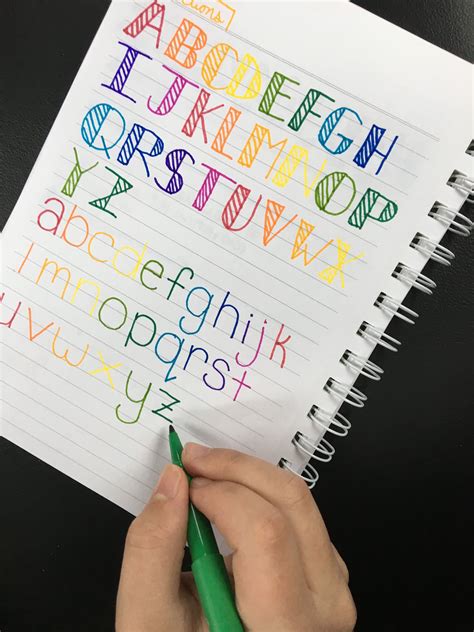 ABCDEFGH
IJKLMNOP
QRSTUVWX
YZ
abcdefghijk
lmnopqrst
uvwxyz